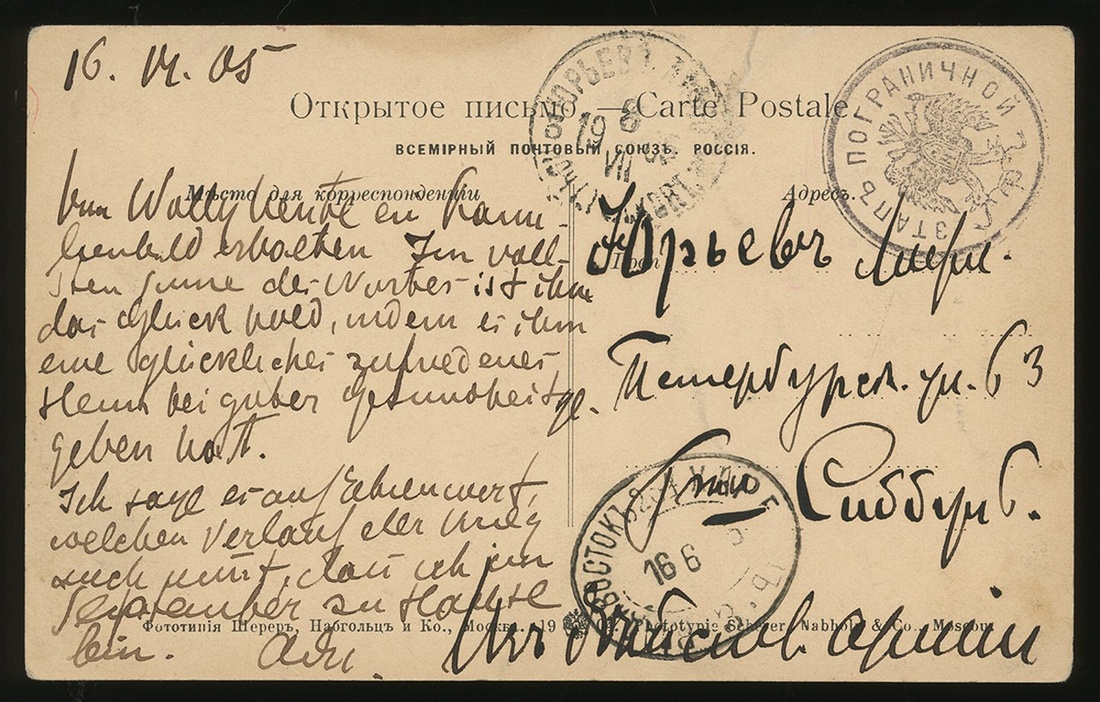 16. VI. 05
Открытое письмо. — Carte Postale.
ВСЕМІРНЫЙ ПОЧТОВЫЙ СОЮЗЪ. РОССІЯ.
Мѣсто для корреспонденціи
Адресъ.
ЭТАПЪ ПОГРАНИЧНОЙ
ЮРЬЕВЪ
19 8 VII
Von Wolly heute ein
erhalten Im voll-
sten Sinne des Wortes ist ihm
das Glück hold, indem es ihm
eine glückliches zufriedenes
Heim bei guter Gesundheit ge-
geben hat.
Ich sage es auf Ehrenwort,
welchen Verlauf der Krieg
auch nimt, dass ich im
September zu Hause
bin.
Юрьевъ Лифл.
Петербургск. ул. 63
Г-ну Сиббуль.
Изъ Действ. армии
ВОСТОКЪ
16 6
Фототипія Шереръ, Набгольцъ и Ко., Москва. 19 Phototypie Scherer, Nabholz & Co., Moscou